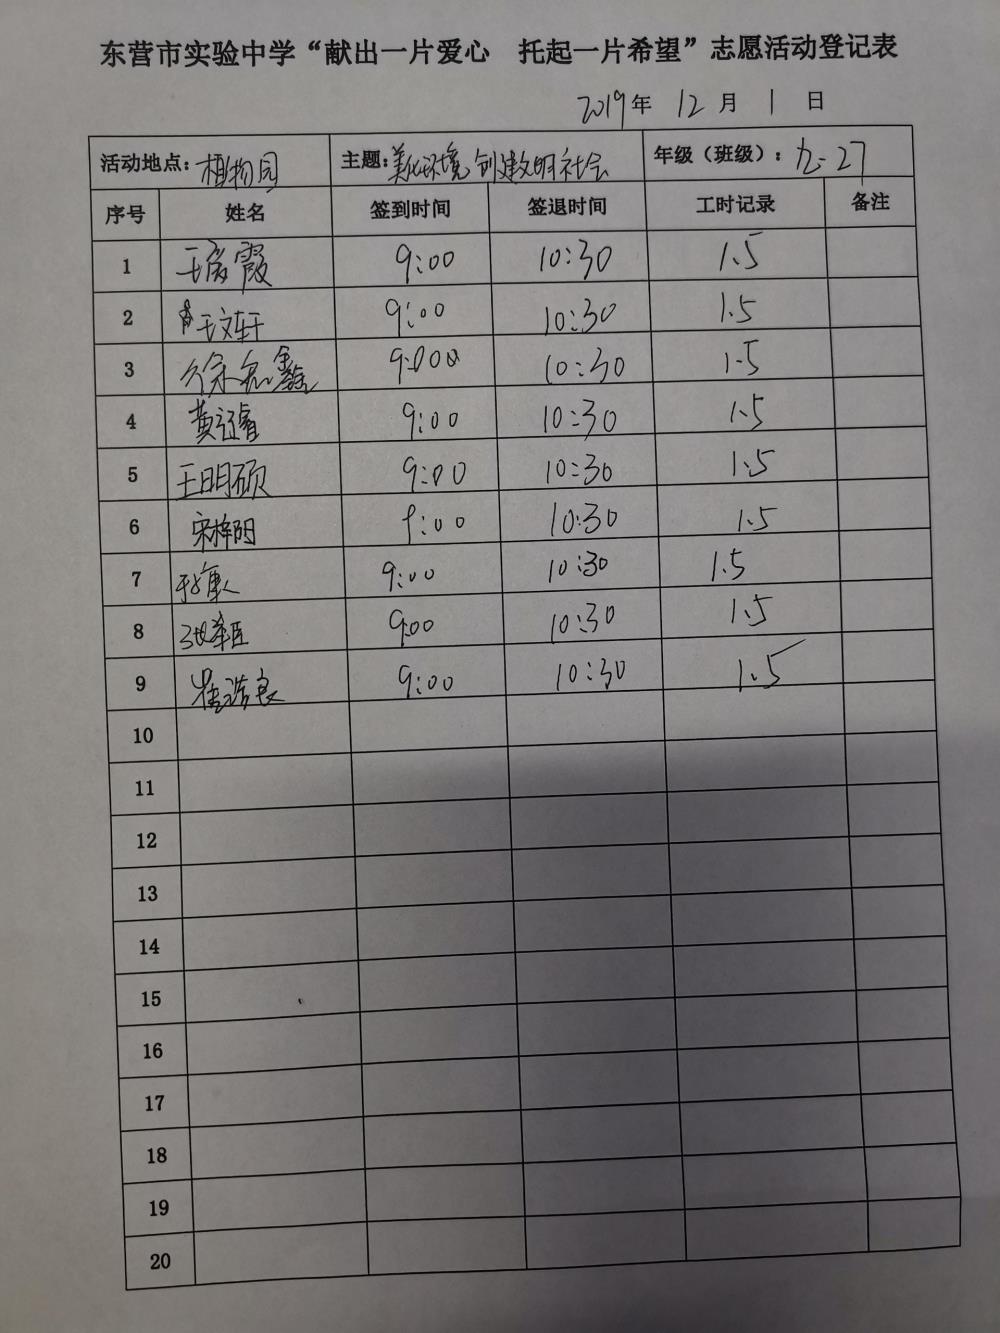 东营市实验中学“献出一片爱心 托起一片希望”志愿活动登记表
2019年 12月 1日
活动地点：植物园 主题：美化环境 创建文明社会 年级（班级）：九-27
序号 姓名 签到时间 签退时间 工时记录 备注
1 9:00 10:30 1.5
2 王文轩 9:00 10:30 1.5
3 9:00 10:30 1.5
4 9:00 10:30 1.5
5 王明硕 9:00 10:30 1.5
6 宋梓阳 9:00 10:30 1.5
7 9:00 10:30 1.5
8 9:00 10:30 1.5
9 崔浩良 9:00 10:30 1.5
10
11
12
13
14
15
16
17
18
19
20